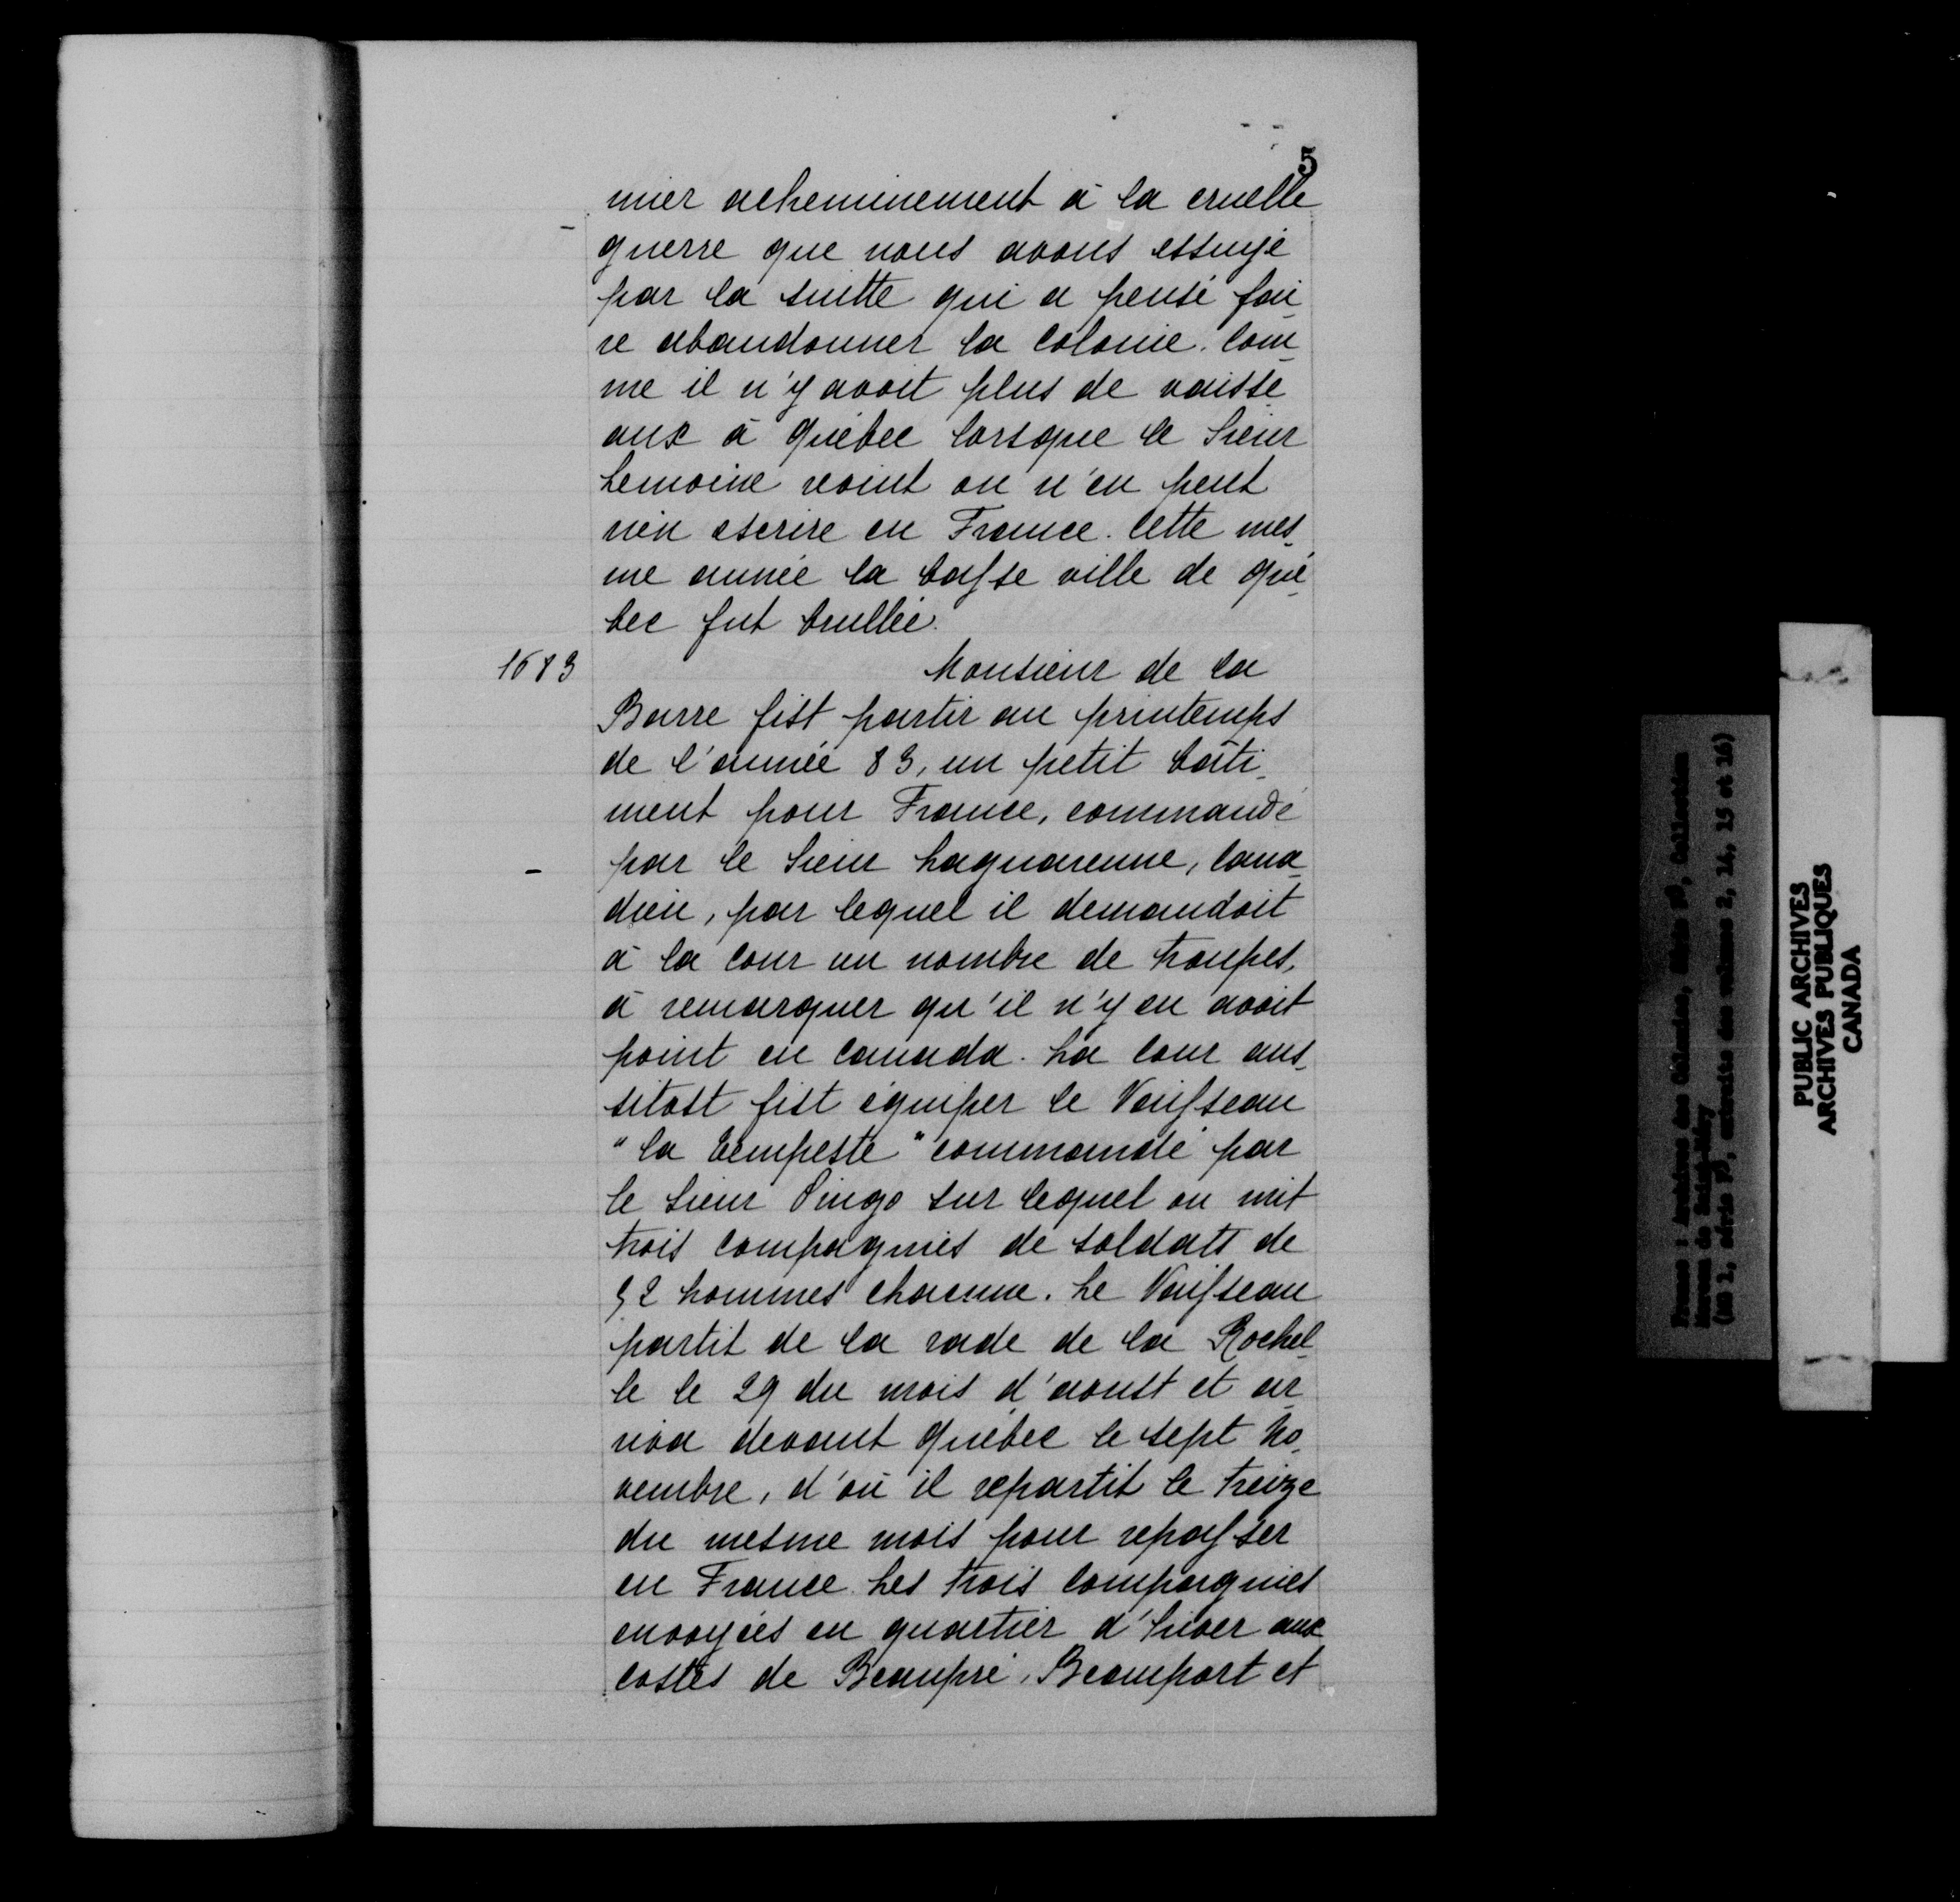 5
mier acheminement à la cruelle
guerre que nous avons essuyé
par la suitte qui a pensé fai-
re abandonner la Colonie. Com-
me il n'y avoit plus de vaisse-
aux à Québec lorsque le Sieur
Lemoine revint on n'en peut
rien escrire en France. Cette mes-
me année la basse ville de Qué-
bec fut brullée.
1683
Monsieur de la
Barre fist partir au printemps
de l'année 83, un petit bâti-
ment pour France, commandé
par le Sieur Laguarenne, Cana-
dien, par lequel il demandoit
à la Cour un nombre de troupes,
à remarquer qu'il n'y en avoit
point en Canada. La Cour aus-
sitost fist équiper le Vaisseau
"la Tempeste" commandé par
le Sieur Pingo sur lequel on mit
trois compagnies de soldats de
52 hommes chacune. Le Vaisseau
partit de la rade de la Rochel-
le le 29 du mois d'aoust et ar-
riva devant Québec le sept No-
vembre, d'où il repartit le treize
du mesme mois pour repasser
en France. Les trois Compagnies
envoyées en quartier d'hiver aux
costes de Beaupré, Beauport et
PUBLIC ARCHIVES
ARCHIVES PUBLIQUES
CANADA
France : Archives des Colonies, Série F3, Collection
Moreau de Saint-Méry
(MG 1, série F3, extraits des volumes 2, 14, 15 et 16)